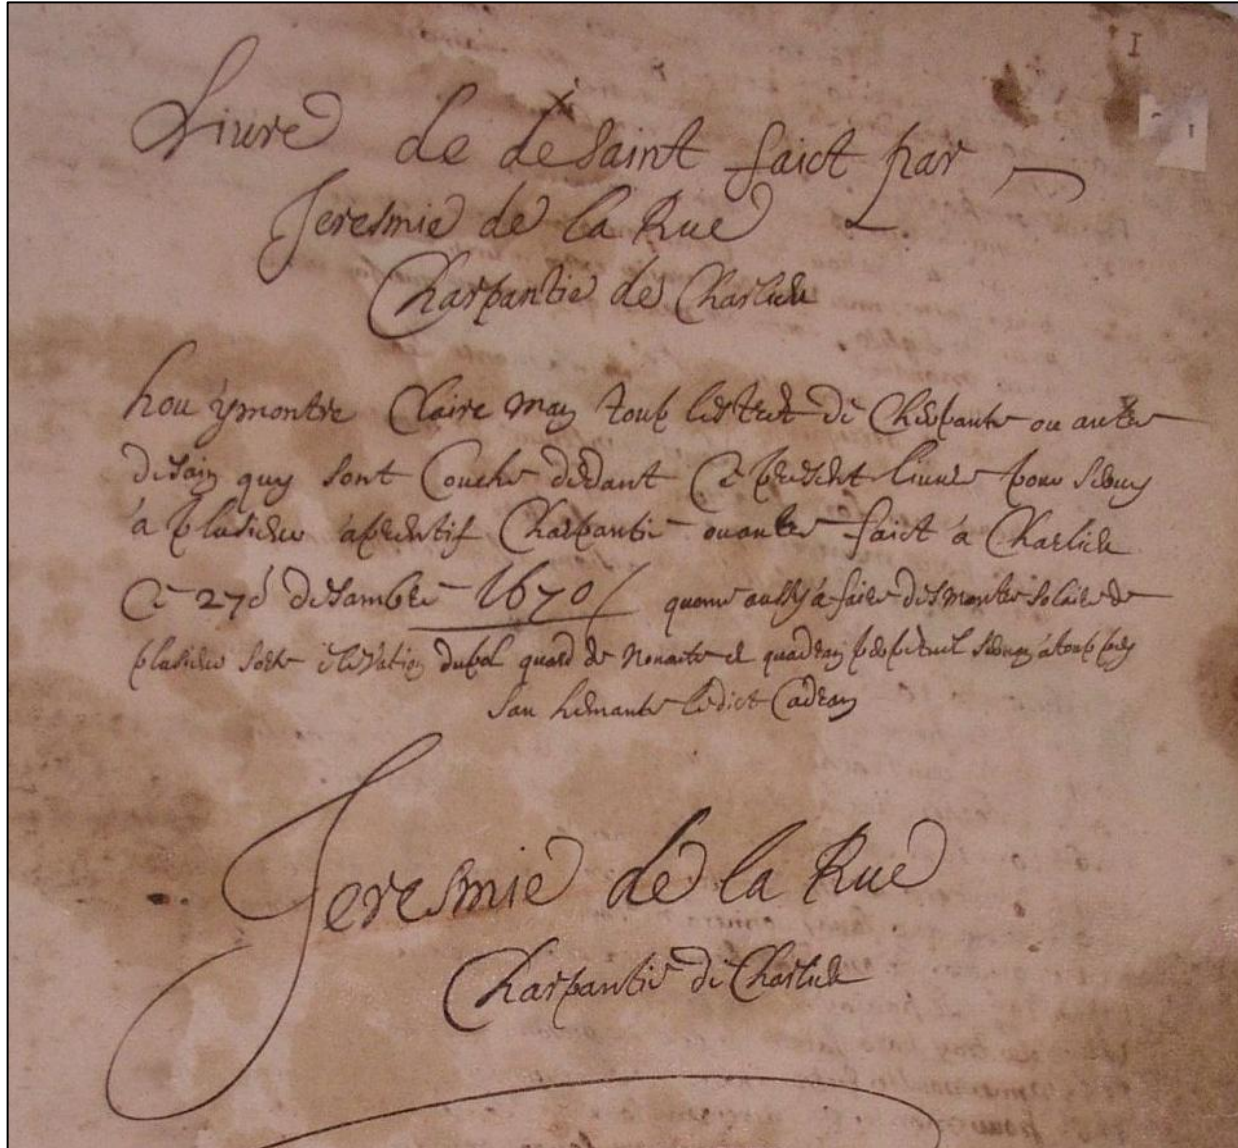 Liure de desaint faict par
Jeresmie de la Rue
Charpantie de Charlieu
hou ymontre Claire man tout les tret de Cherpante ou autre
desain quy sont Couche dedant Ce present liure pour seruy
à plusieur aprentif Charpantie ou autre faict à Charlieu
Ce 27e desambre 1670 / quome aussy a faire des montre solaire de
plusieur sorte elevation du pol quard de Nonante et quadran perpetuel
ledict Cadran
Jeresmie de la Rue
Charpantie de Charlieu